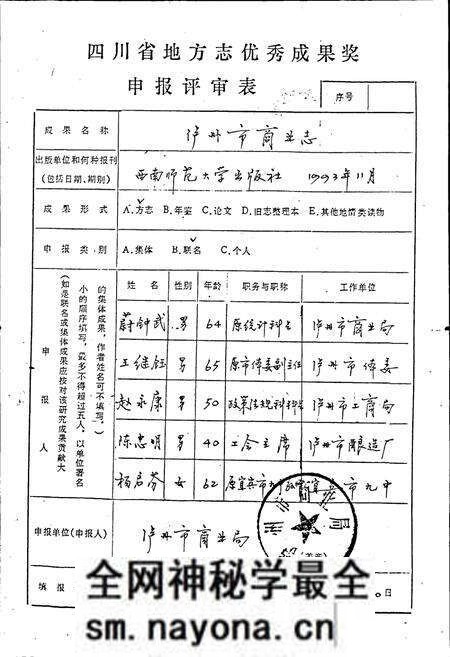 四川省地方志优秀成果奖
申报评审表
序号
成果名称 泸州市商业志
出版单位和何种报刊(包括日期、期别) 西南师范大学出版社 1993年11月
成果形式 A.方志 B.年鉴 C.论文 D.旧志整理本 E.其他地情类读物
申报类别 A.集体 B.联名 C.个人
申报人
(如是联名或集体成果应按对该研究成果贡献大
小的顺序填写,最多不得超过五人,以单位署名
的集体成果,作者姓名可不填写。)
姓名 性别 年龄 职务与职称 工作单位
蔚钟武 男 64 原统计科长 泸州市商业局
王继钰 男 65 原市体委副主任 泸州市体委
赵永康 男 50 政策法规科科长 泸州市工商局
陈忠明 男 40 工会主席 泸州市酿造厂
杨启芬 女 62 市九中
申报单位(申报人) 泸州市商业局
填报 日
全网神秘学最全
sm.nayona.cn